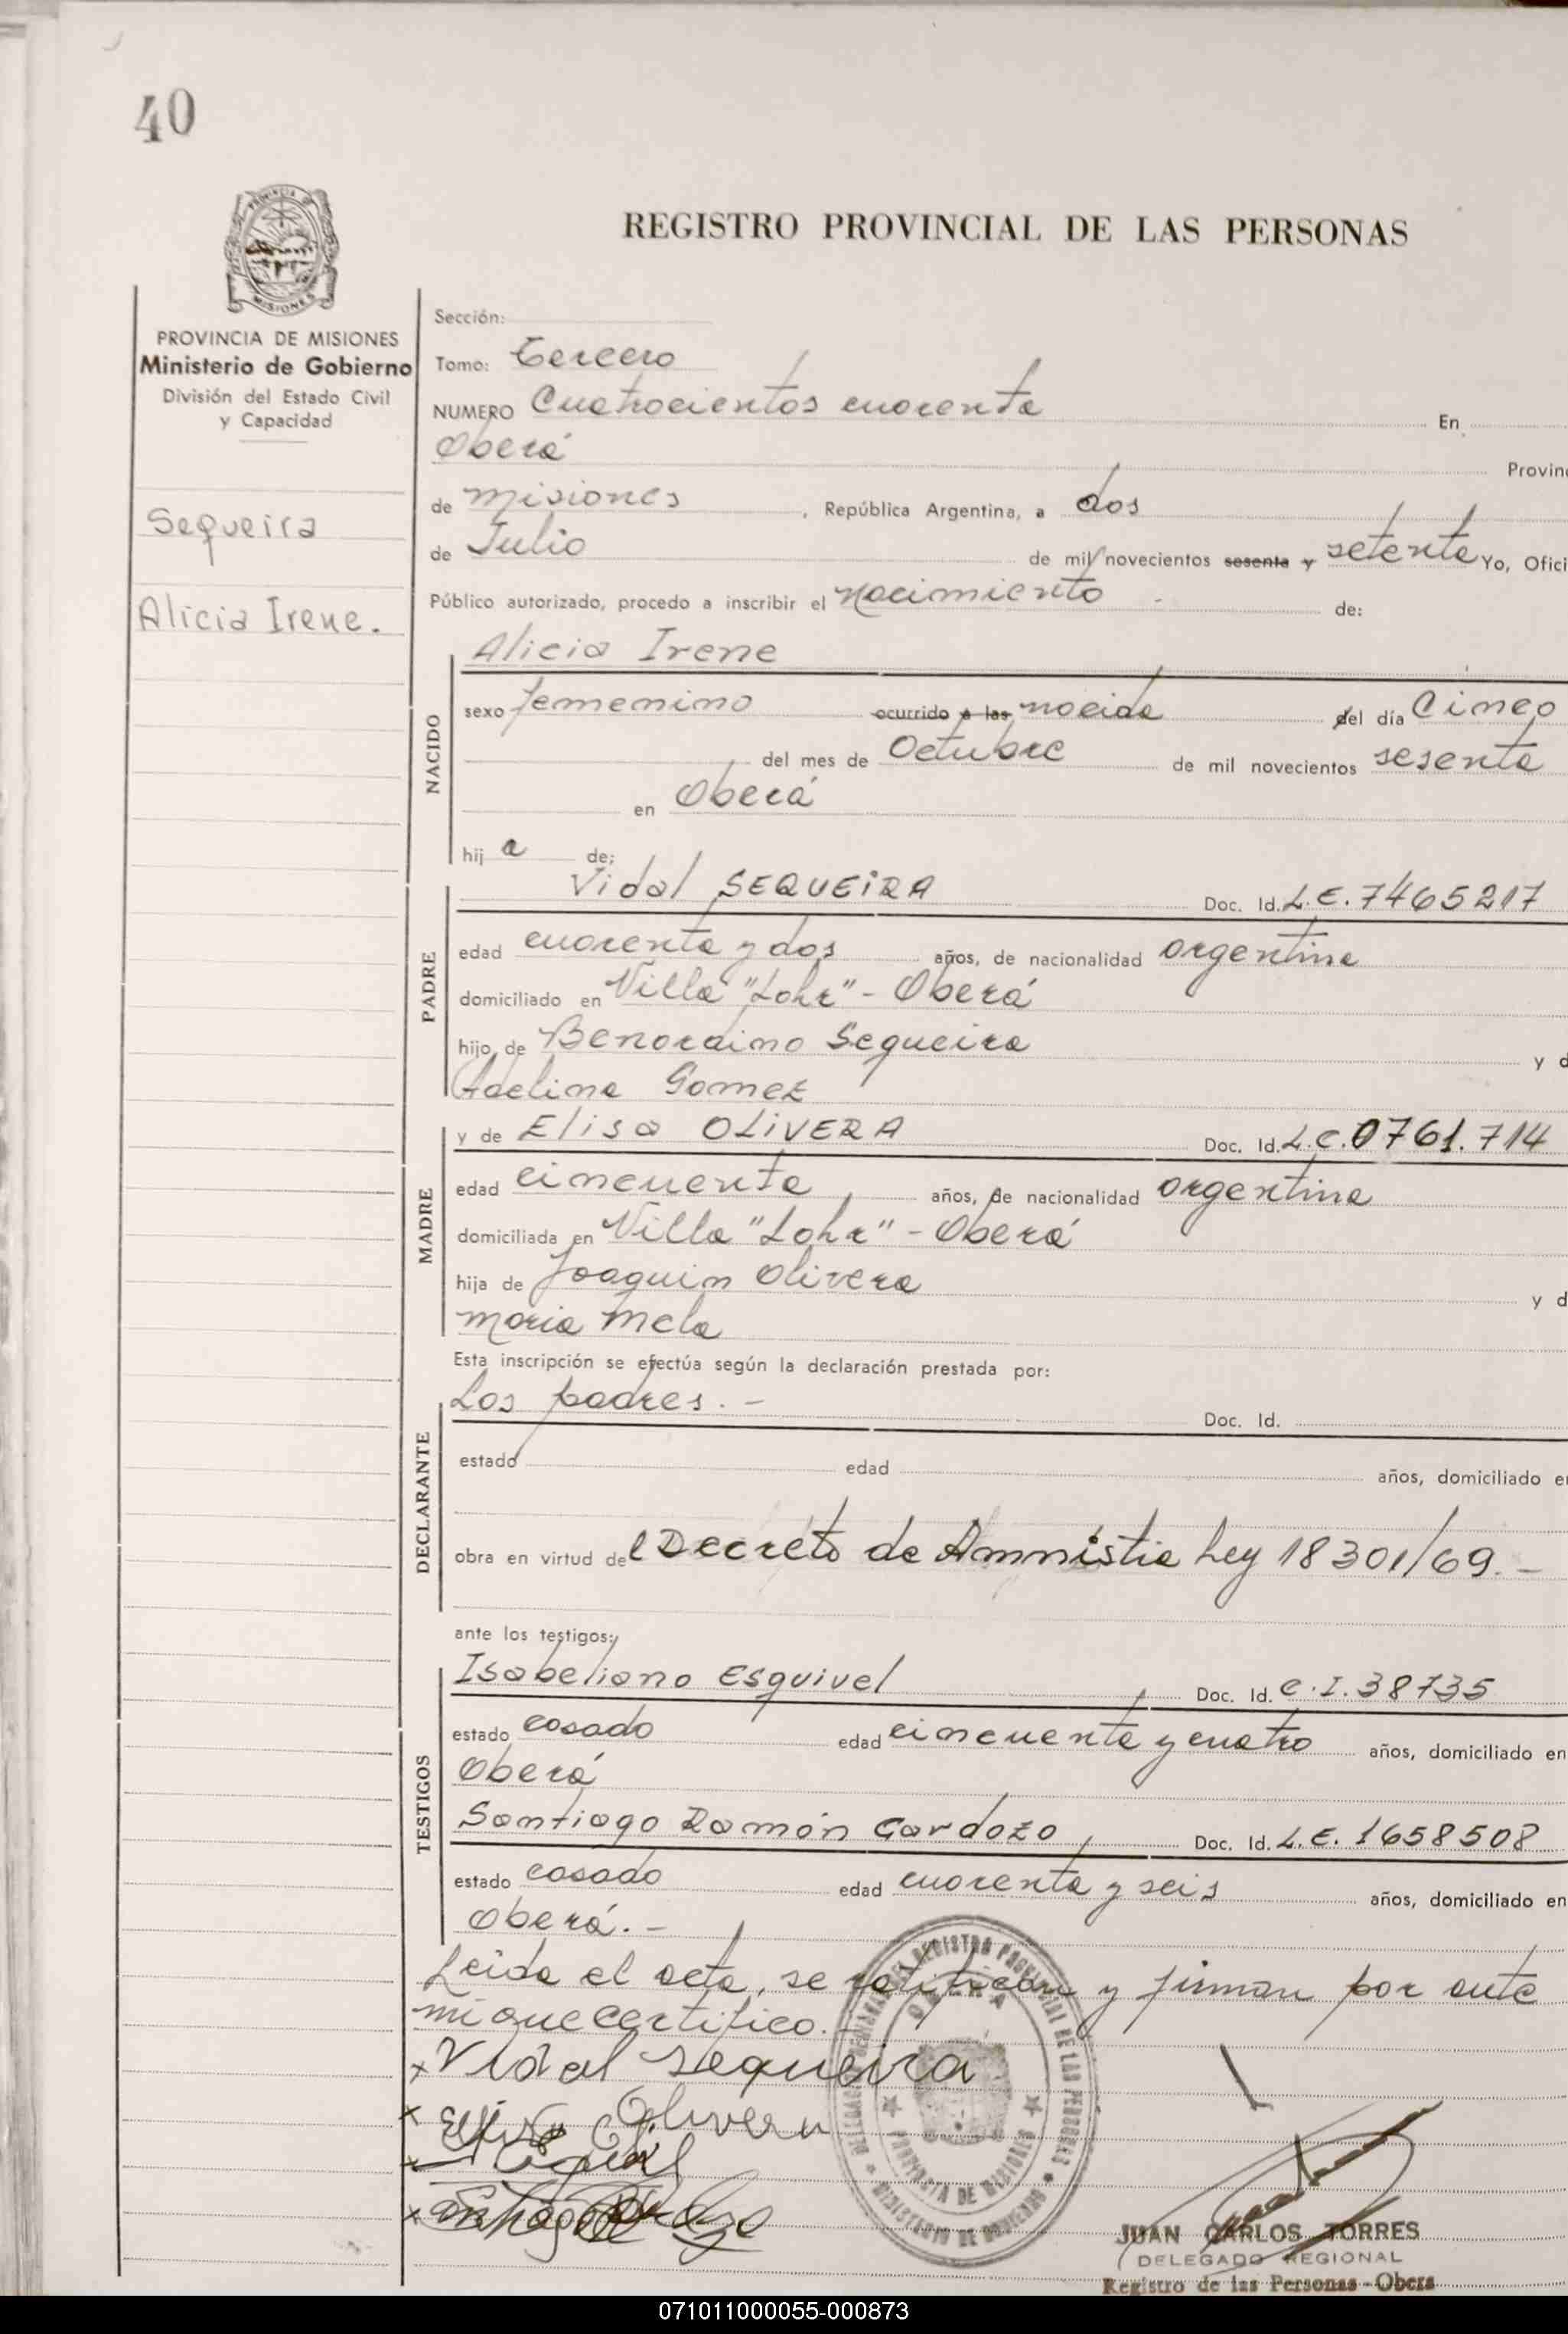 40
PROVINCIA DE MISIONES
Ministerio de Gobierno
División del Estado Civil
y Capacidad
Sequeira
Alicia Irene.
REGISTRO PROVINCIAL DE LAS PERSONAS
Sección:
Tomo: Tercero
NUMERO Cuatrocientos cuarenta En
Oberá Provin
de misiones, República Argentina, a dos
de Julio de mil novecientos sesenta y setenta Yo, Ofici
Público autorizado, procedo a inscribir el nacimiento de:
NACIDO
Alicia Irene
sexo femenino ocurrido a las nacida del día Cinco
del mes de Octubre de mil novecientos sesenta
en Oberá
hija de:
PADRE
Vidal SEQUEIRA Doc. Id. L.E. 7465217
edad cuarenta y dos años, de nacionalidad argentina
domiciliado en Villa "Lohr" - Oberá
hijo de Benardino Sequeira y d
Adelina Gomez
MADRE
y de Elisa OLIVERA Doc. Id. L.C. 0761.714
edad cincuenta años, de nacionalidad argentina
domiciliada en Villa "Lohr" - Oberá
hija de Joaquin Olivera y d
maria Mela
Esta inscripción se efectúa según la declaración prestada por:
DECLARANTE
Los padres. - Doc. Id.
estado edad años, domiciliado en
obra en virtud del Decreto de Amnistia Ley 18301/69. -
ante los testigos:
TESTIGOS
Isabeliano Esquivel Doc. Id. C.I. 38735
estado casado edad cincuenta y cuatro años, domiciliado en
Oberá
Santiago Ramón Cardozo Doc. Id. L.E. 1658508
estado casado edad cuarenta y seis años, domiciliado en
Oberá. -
Leida el acta, se ratifican y firman por ante
mi que certifico. -
x Vidal Sequeira
x Elisa Olivera
x
x Santiago
REGISTRO PROVINCIAL DE LAS PERSONAS
OBERA
PROVINCIA DE MISIONES
MINISTERIO DE GOBIERNO
JUAN CARLOS TORRES
DELEGADO REGIONAL
Registro de las Personas - Obera
071011000055-000873